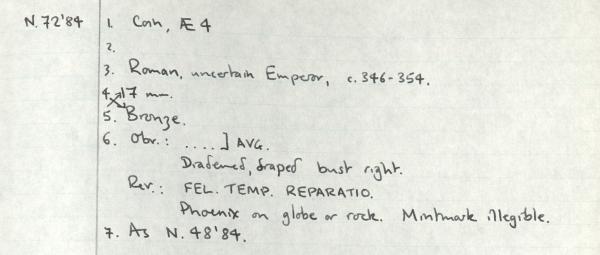 N.72'84 1. Coin, Æ 4
2.
3. Roman, uncertain Emperor, c.346-354.
4. 17 mm.
5. Bronze.
6. Obv.: ....] AVG.
Diademed, draped bust right.
Rev.: FEL. TEMP. REPARATIO.
Phoenix on globe or rock. Mintmark illegible.
7. As N.48'84.